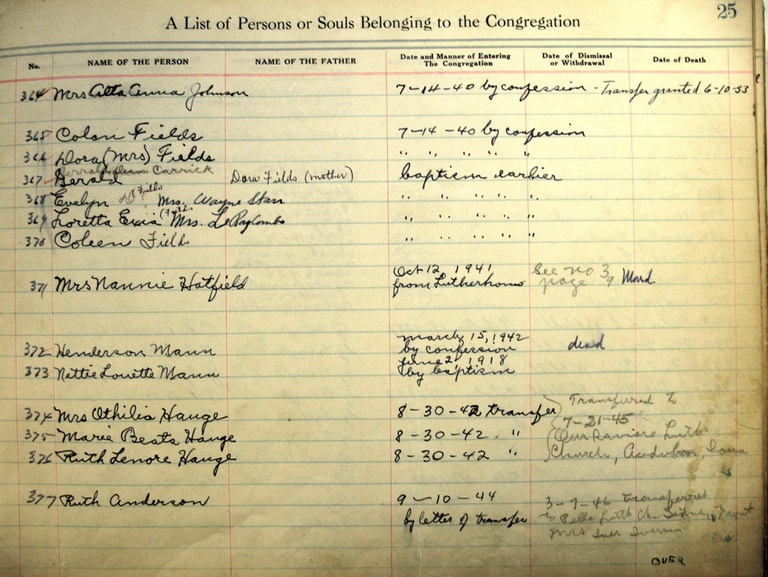 25
A List of Persons or Souls Belonging to the Congregation
No. NAME OF THE PERSON NAME OF THE FATHER Date and Manner of Entering The Congregation Date of Dismissal or Withdrawal Date of Death
364 Mrs Alta Anna Johnson 7-14-40 by confession - Transfer granted 6-10-53
365 Colon Fields 7-14-40 by confession
366 Dora (Mrs) Fields " " " " "
367 Gerald Carrick Dora Fields (mother) baptism earlier
368 Evelyn Fields Mrs. Wayne Starr " " " "
369 Loretta Mrs. " " " "
370 Coleen Fields " " " "
371 Mrs Nannie Hatfield Oct 12, 1941 See no 3
from page 9
372 Henderson Mann March 15, 1942 by confession dead
373 Nettie Louette Mann June 2, 1918 by baptism
374 Mrs Othilia Hauge 8-30-42 transfer Transferred to
7-21-45
375 Marie Beata Hauge 8-30-42 " Our Luth
376 Ruth Lenore Hauge 8-30-42 " Church, Audubon, Iowa
377 Ruth Anderson 9-10-44 3-7-46 transferred
by letter of transfer to Pella Luth Ch. Sidney, Mont
Mrs Iver Iverson
OVER